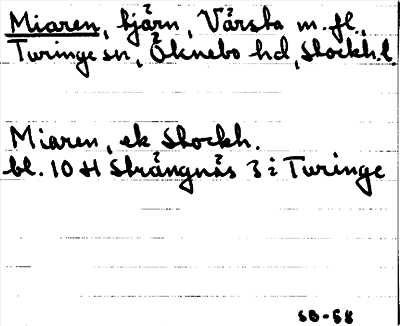 Miaren, tjärn, Vårsta m. fl.,
Turinge sn, Öknebo hd, Stockh. l.
Miaren, ek Stockh.
bl. 10 H Strängnäs 3 i Turinge
SB-68